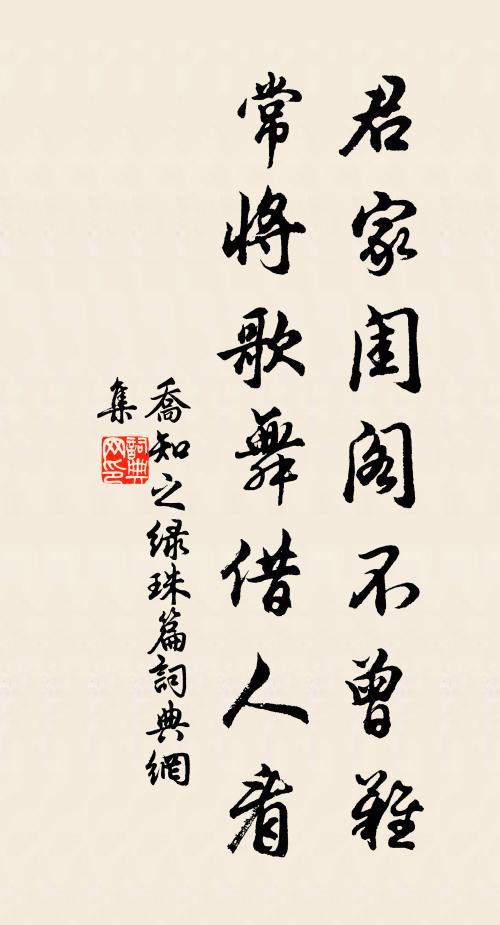 君家闺阁不曾難
常将歌舞借人看
喬知之绿珠篇詞典網
集
詞典網印